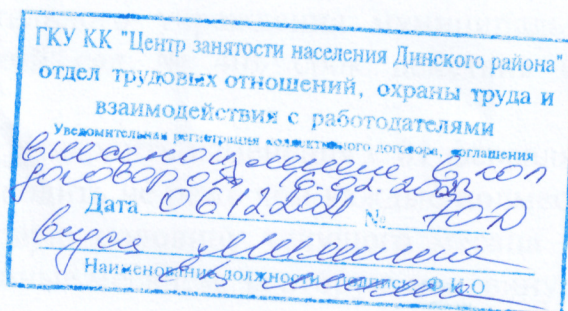 ГКУ КК "Центр занятости населения Динского района"
отдел трудовых отношений, охраны труда и
взаимодействия с работодателями
Уведомительная регистрация коллективного договора, соглашения
в кол
договор от 16.02.2023
Дата 06.12.2024 № 70-Д
Наименование должности, подпись, Ф.И.О